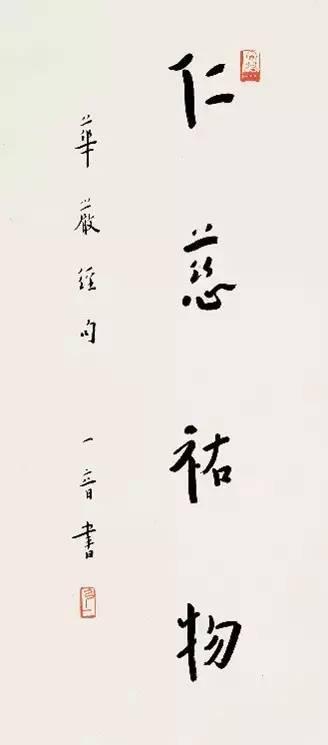 仁慈祐物
華嚴經句
一音書